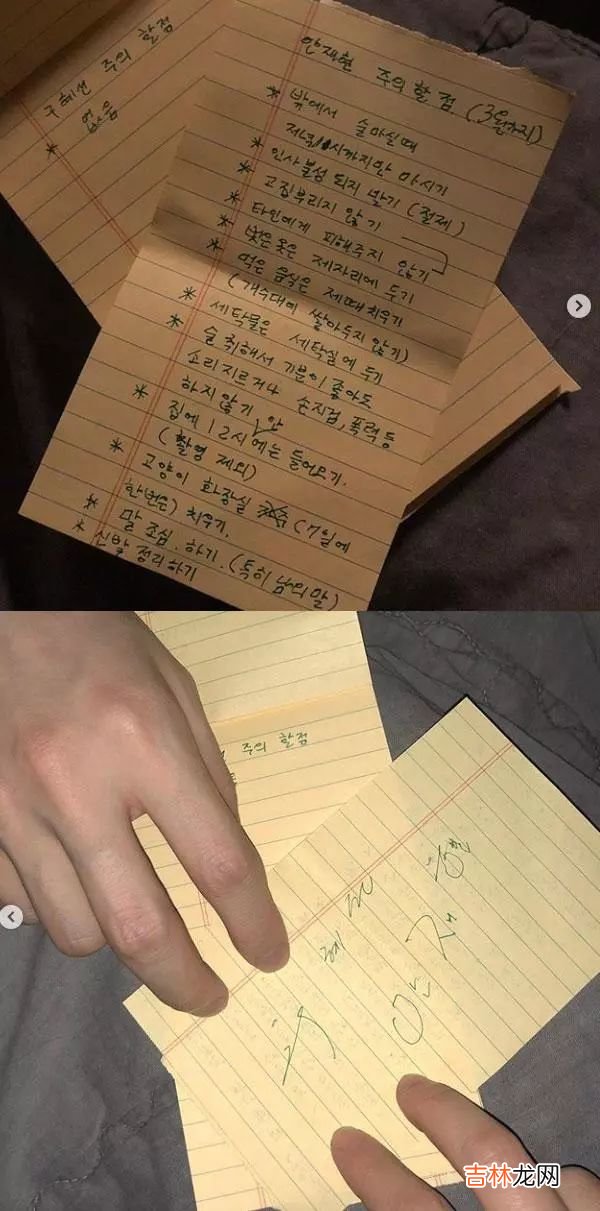 구혜선 주의 할점
* 없음
안재현 주의 할 점. (3일까지)
* 밖에서 술마실때
저녁 11시까지만 마시기
* 인사불성 되지 말기 (절제)
* 고집부리지 않기
* 타인에게 피해주지 않기
* 벗은옷은 제자리에 두기
* 먹은 음식은 제때 치우기
(개수대에 쌓아두지 않기)
* 세탁물은 세탁실에 두기
* 술 취해서 기분이 좋아도
소리지르거나 손지검, 폭력 등
하지 않기
* 집에 12시 안에는 들어오기.
(촬영 제외)
* 고양이 화장실 (7일에
한번은) 치우기.
* 말 조심. 하기. (특히 남의 말)
* 신발 정리하기
주의 할점
구혜선
안재현
吉林龙网